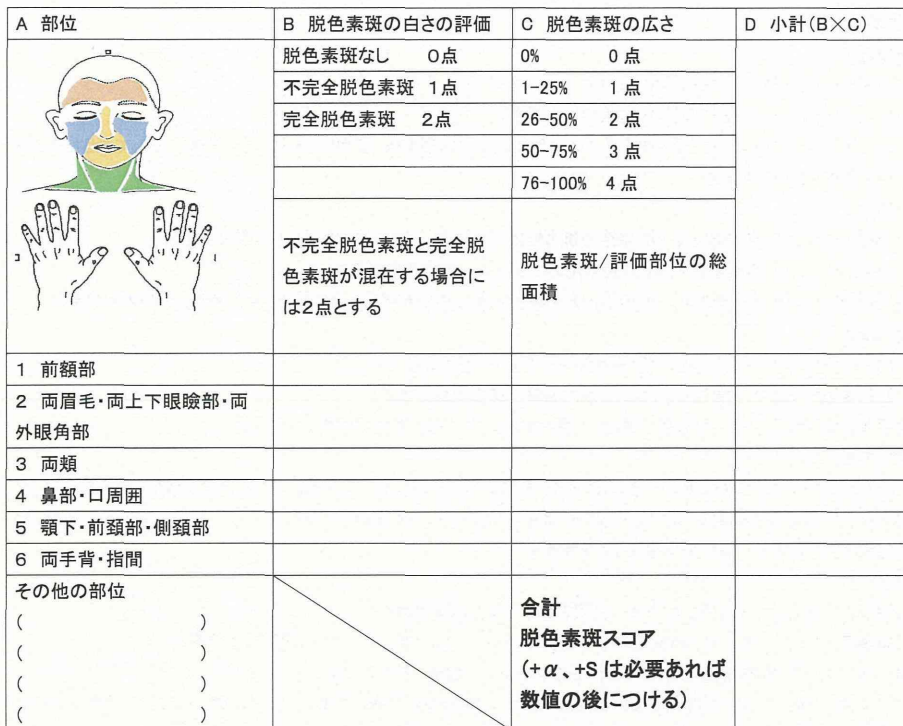 A 部位 B 脱色素斑の白さの評価 C 脱色素斑の広さ D 小計(B×C)
脱色素斑なし 0点 0% 0点
不完全脱色素斑 1点 1-25% 1点
完全脱色素斑 2点 26-50% 2点
50-75% 3点
76-100% 4点
不完全脱色素斑と完全脱
色素斑が混在する場合に
は2点とする
脱色素斑/評価部位の総
面積
1 前額部
2 両眉毛・両上下眼瞼部・両
外眼角部
3 両頬
4 鼻部・口周囲
5 顎下・前頚部・側頚部
6 両手背・指間
その他の部位
( )
( )
( )
( )
合計
脱色素斑スコア
(+α、+Sは必要あれば
数値の後につける)